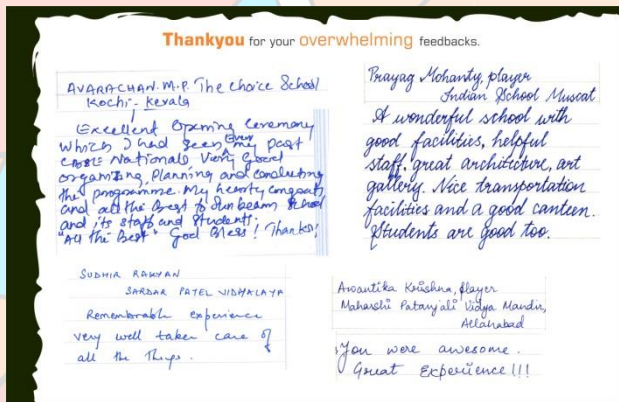 Thankyou for your overwhelming feedbacks.
AVARACHAN.M.P. The Choice School
Kochi - Kerala
Excellent Opening Ceremony
which I had seen Ever my past
CBSE Nationals Very Good
organizing, Planning and conducting
the programme. My hearty congrats
and all the Best to Sunbeam School
and its staff and students.
"All the Best" God Bless! Thanks!
Prayag Mohanty, player
Indian School Muscat
A wonderful school with
good facilities, helpful
staff, great architecture, art
gallery. Nice transportation
facilities and a good canteen.
Students are good too.
SUDHIR RAKYAN
SARDAR PATEL VIDHALAYA
Remembrable experience
very well taken care of
all the Things.
Awantika Krishna, player
Maharshi Patanjali Vidya Mandir,
Allahabad
You were awesome.
Great Experience!!!